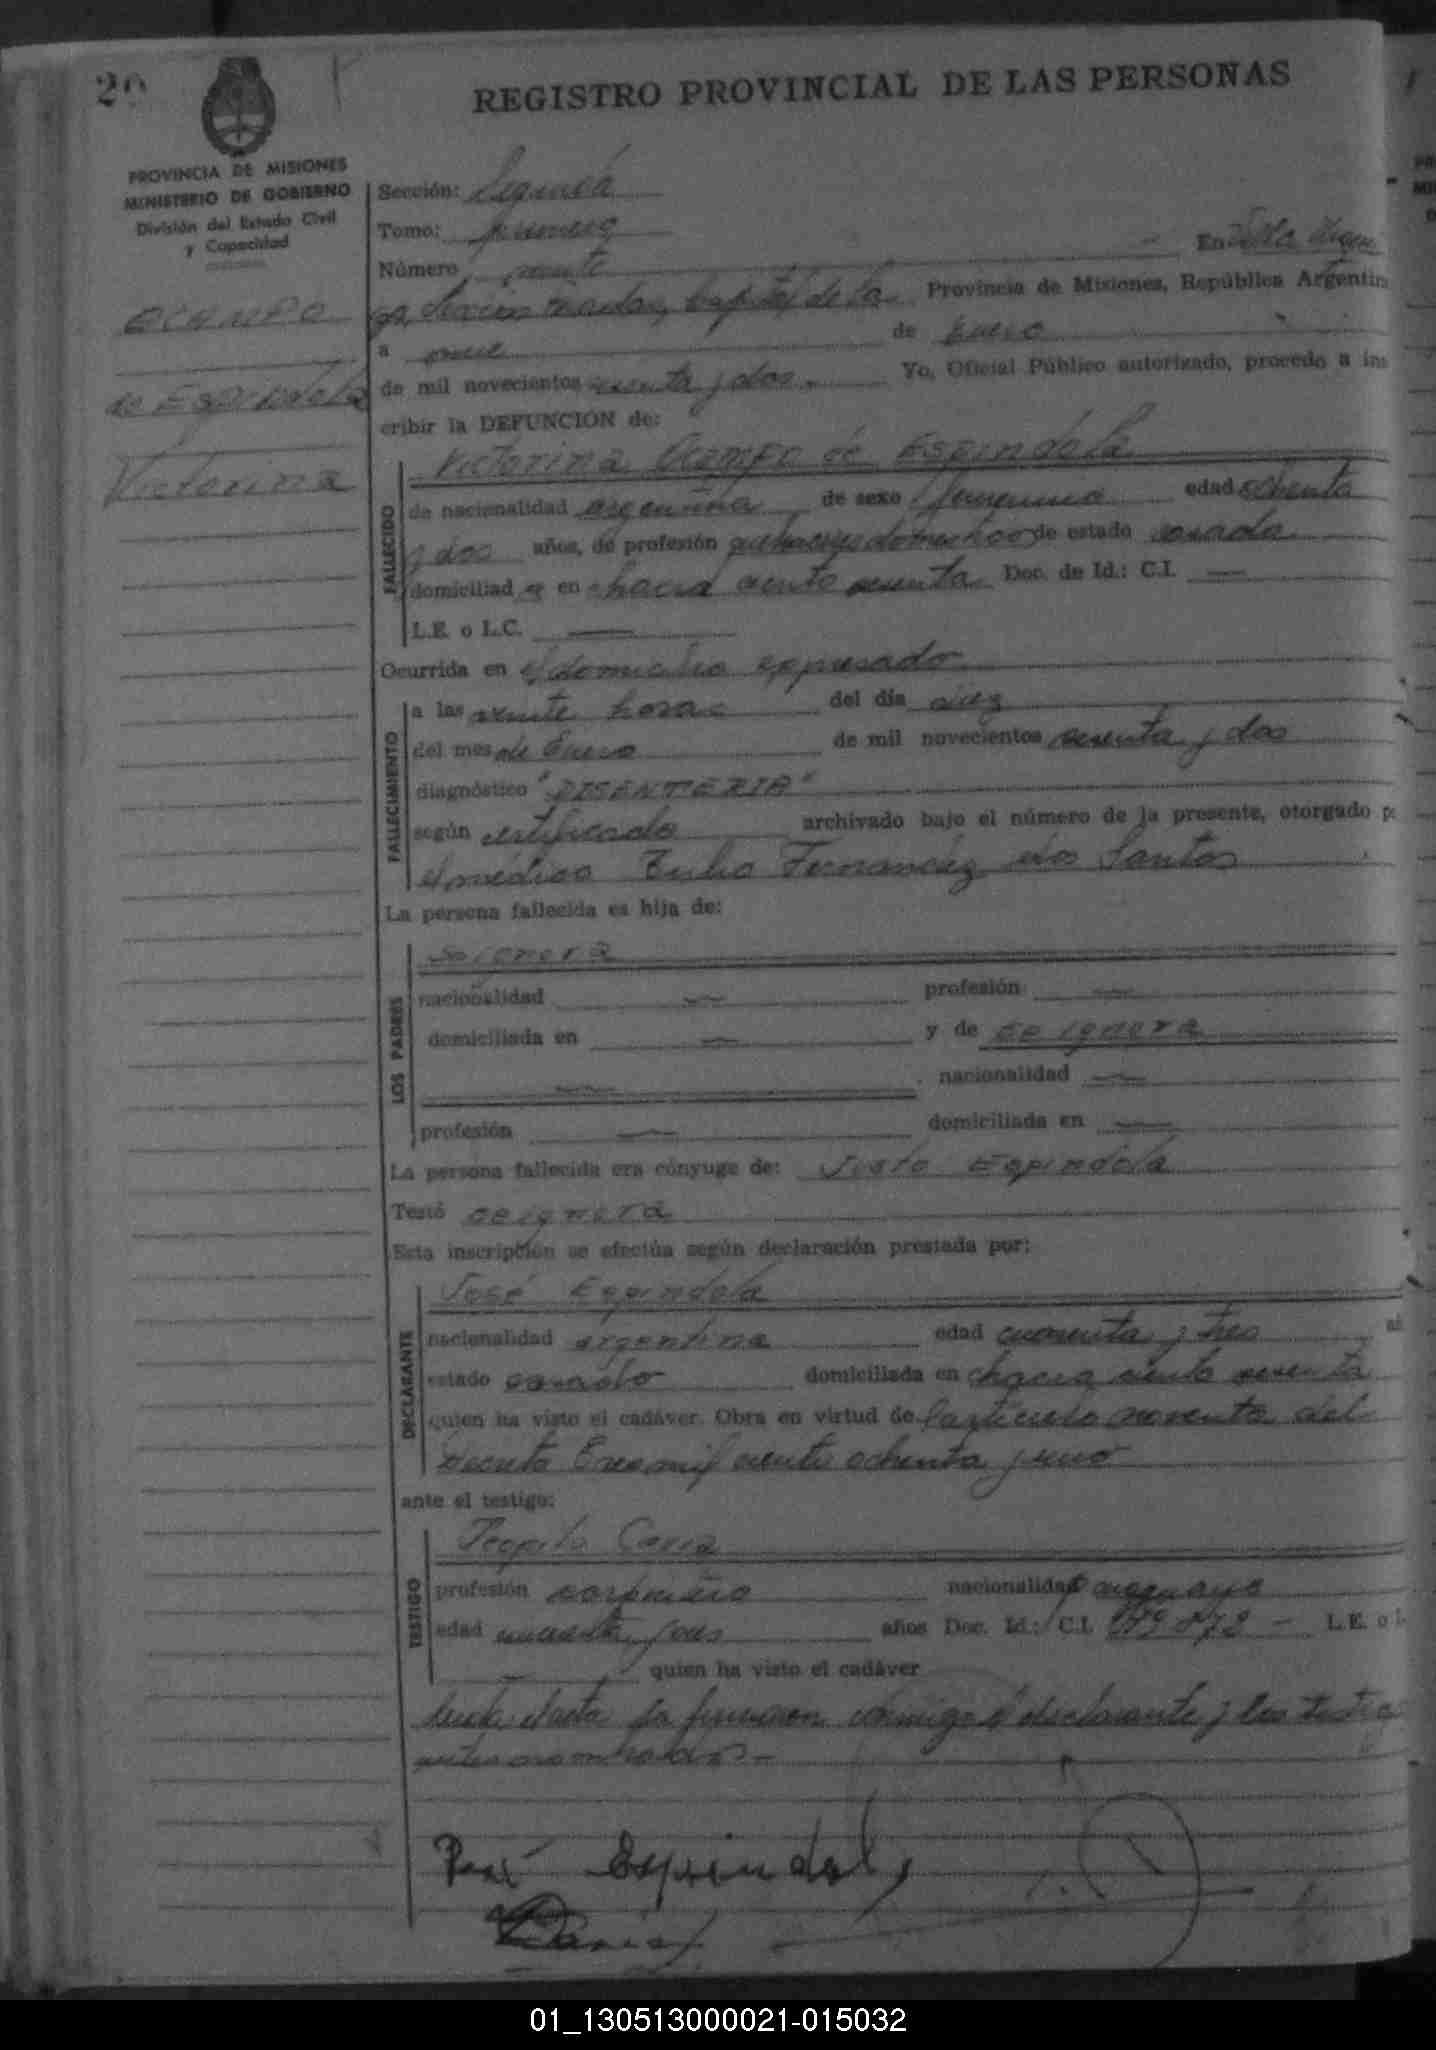 20
REGISTRO PROVINCIAL DE LAS PERSONAS
PROVINCIA DE MISIONES
MINISTERIO DE GOBIERNO
División del Estado Civil
y Capacidad
OCAMPO
de Espindola
Victorina
Sección: Segunda
Tomo: primero
Número veinte En Villa
Sección Posadas, Capital de la Provincia de Misiones, República Argentin
a once de Enero
de mil novecientos sesenta y dos. Yo, Oficial Público autorizado, procedo a ins
cribir la DEFUNCION de:
FALLECIDO
Victorina Ocampo de Espindola
de nacionalidad argentina de sexo femenino edad ochenta
y dos años, de profesión quehaceres domesticos de estado casada
domiciliad a en chacra ciento sesenta Doc. de Id.: C.I. —
L.E. o L.C. —
Ocurrida en el domicilio expresado
FALLECIMIENTO
a las veinte horas del día diez
del mes de Enero de mil novecientos sesenta y dos
diagnóstico "DISENTERIA"
según certificado archivado bajo el número de la presente, otorgado p
el médico Tulio Fernandez dos Santos
La persona fallecida es hija de:
LOS PADRES
Se ignora
nacionalidad — profesión —
domiciliada en — y de se ignora
— . nacionalidad —
profesión — domiciliada en —
La persona fallecida era cónyuge de: Justo Espindola
Testó se ignora
Esta inscripción se efectúa según declaración prestada por:
DECLARANTE
José Espindola
nacionalidad argentina edad cuarenta y tres añ
estado casado domiciliada en chacra ciento sesenta
quien ha visto el cadáver. Obra en virtud de l'artículo noventa del
Decreto Tres mil ciento ochenta y uno
ante el testigo:
TESTIGO
Teofilo
profesión carpintero nacionalidad paraguayo
edad años Doc. Id.: C.I. L.E. o L
— quien ha visto el cadáver
Leida el acta la firmaron conmigo el declarante y los testigo
antes nombrados.—
José Espindola
01_130513000021-015032